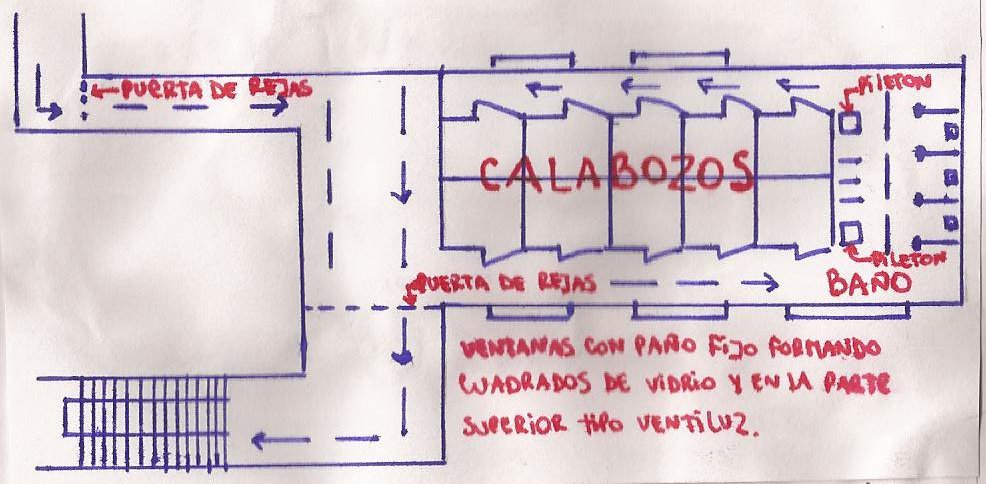 PUERTA DE REJAS
PILETON
CALABOZOS
PILETON
PUERTA DE REJAS
BAÑO
VENTANAS CON PAÑO FIJO FORMANDO
CUADRADOS DE VIDRIO Y EN LA PARTE
SUPERIOR TIPO VENTILUZ.